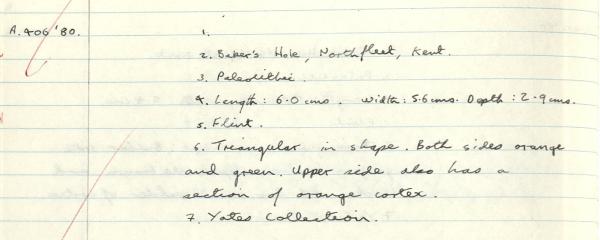 A.406'80. 1.
2. Baker's Hole, Northfleet, Kent.
3. Paleolithic.
4. Length: 6.0 cms. Width: 5.6 cms. Depth: 2.9 cms.
5. Flint.
6. Triangular in shape. Both sides orange
and green. Upper side also has a
section of orange cortex.
7. Yates Collection.